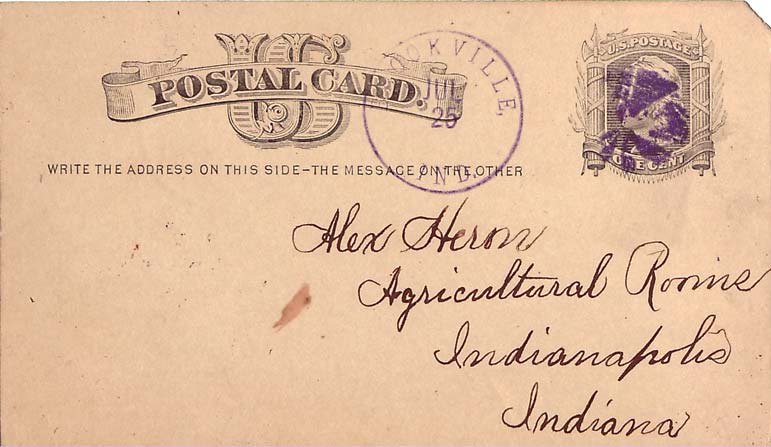 US
POSTAL CARD.
U.S. POSTAGE
ONE CENT
OKVILLE,
JUL
29
IND.
WRITE THE ADDRESS ON THIS SIDE-THE MESSAGE ON THE OTHER
Alex Heron
Agricultural Rooms
Indianapolis
Indiana